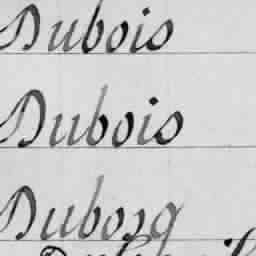 Dubois
Dubois
Dubosq